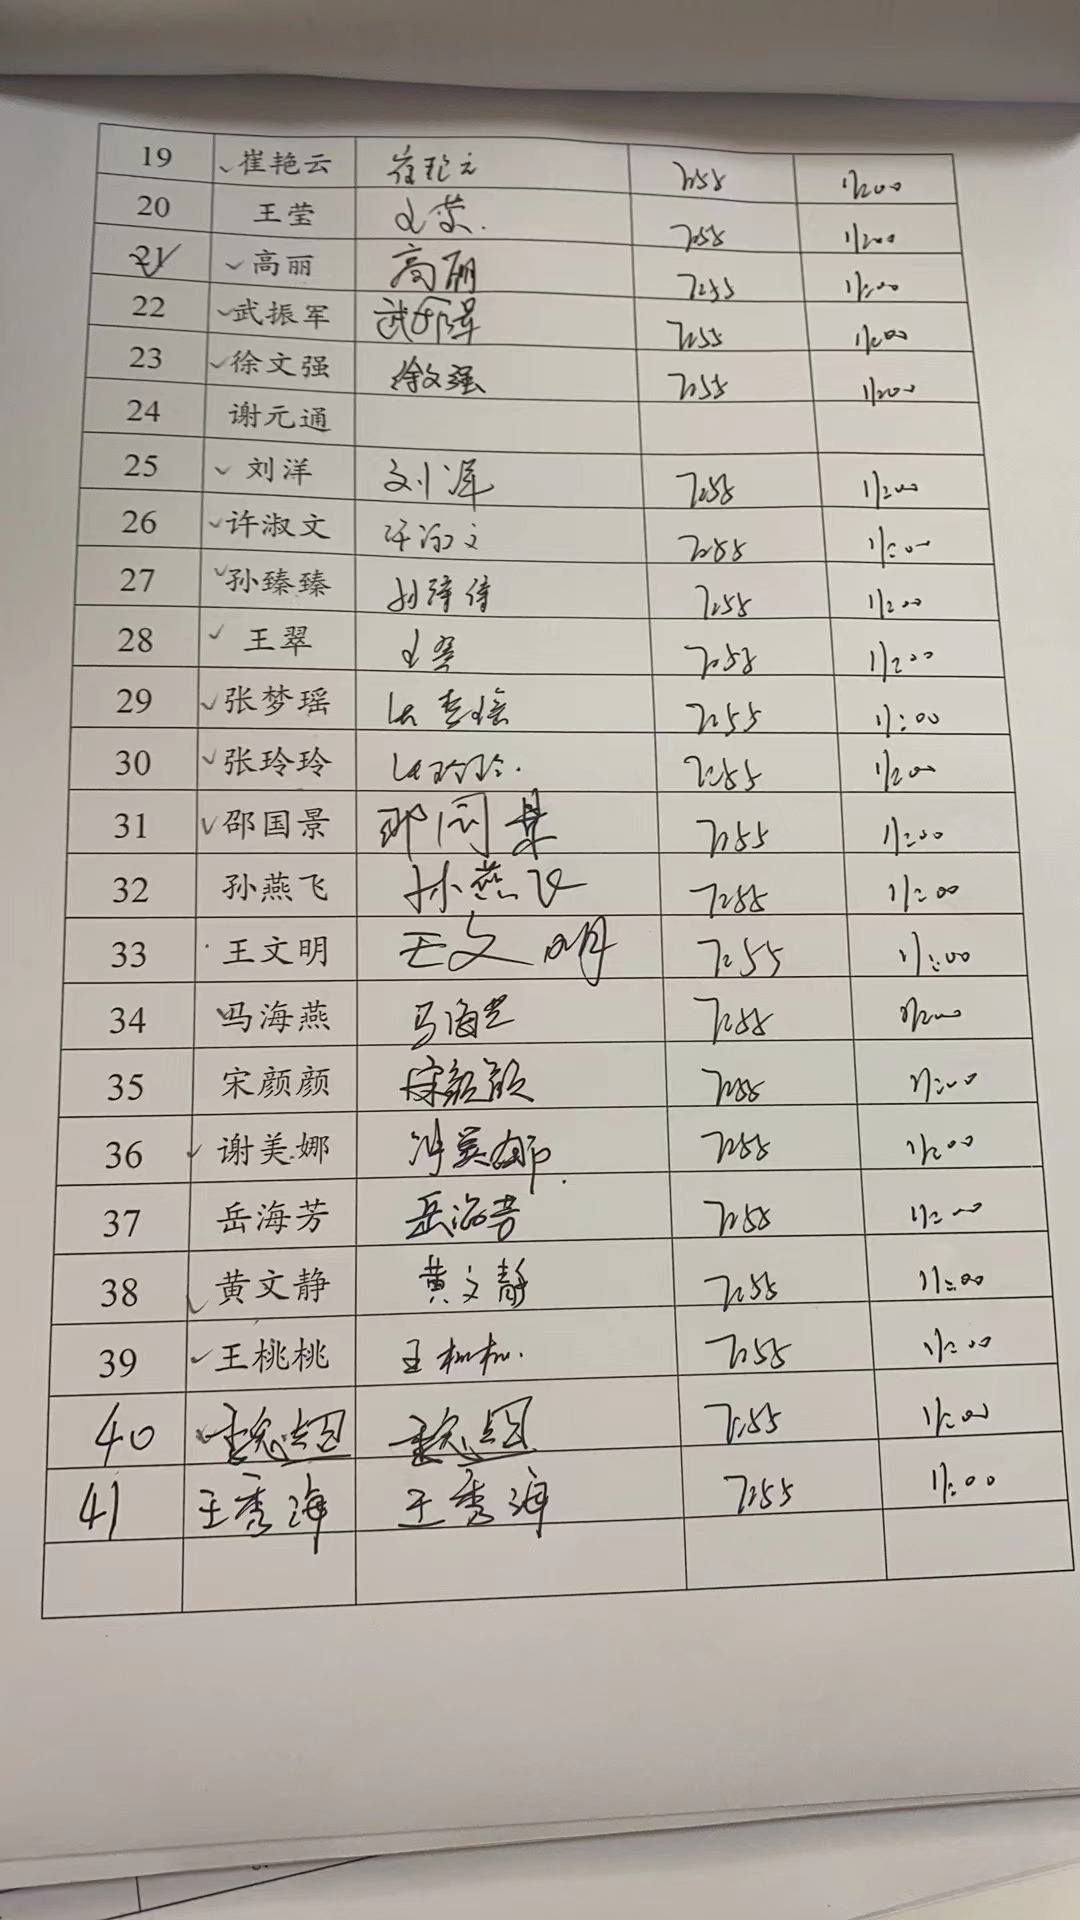 19 崔艳云 崔艳云 7:55 11:00
20 王莹 王莹. 7:55 11:00
21 高丽 高丽 7:55 11:00
22 武振军 武振军 7:55 11:00
23 徐文强 徐文强 7:55 11:00
24 谢元通
25 刘洋 刘洋 7:55 11:00
26 许淑文 许淑文 7:55 11:00
27 孙臻臻 孙臻臻 7:55 11:00
28 王翠 王翠 7:55 11:00
29 张梦瑶 张梦瑶 7:55 11:00
30 张玲玲 张玲玲. 7:55 11:00
31 邵国景 邵国景 7:55 11:00
32 孙燕飞 孙燕飞 7:55 11:00
33 王文明 王文明 7:55 11:00
34 马海燕 马海燕 7:55 11:00
35 宋颜颜 宋颜颜 7:55 11:00
36 谢美娜 谢美娜. 7:55 11:00
37 岳海芳 岳海芳 7:55 11:00
38 黄文静 黄文静 7:55 11:00
39 王桃桃 王桃桃. 7:55 11:00
40 7:55 11:00
41 王秀海 王秀海 7:55 11:00